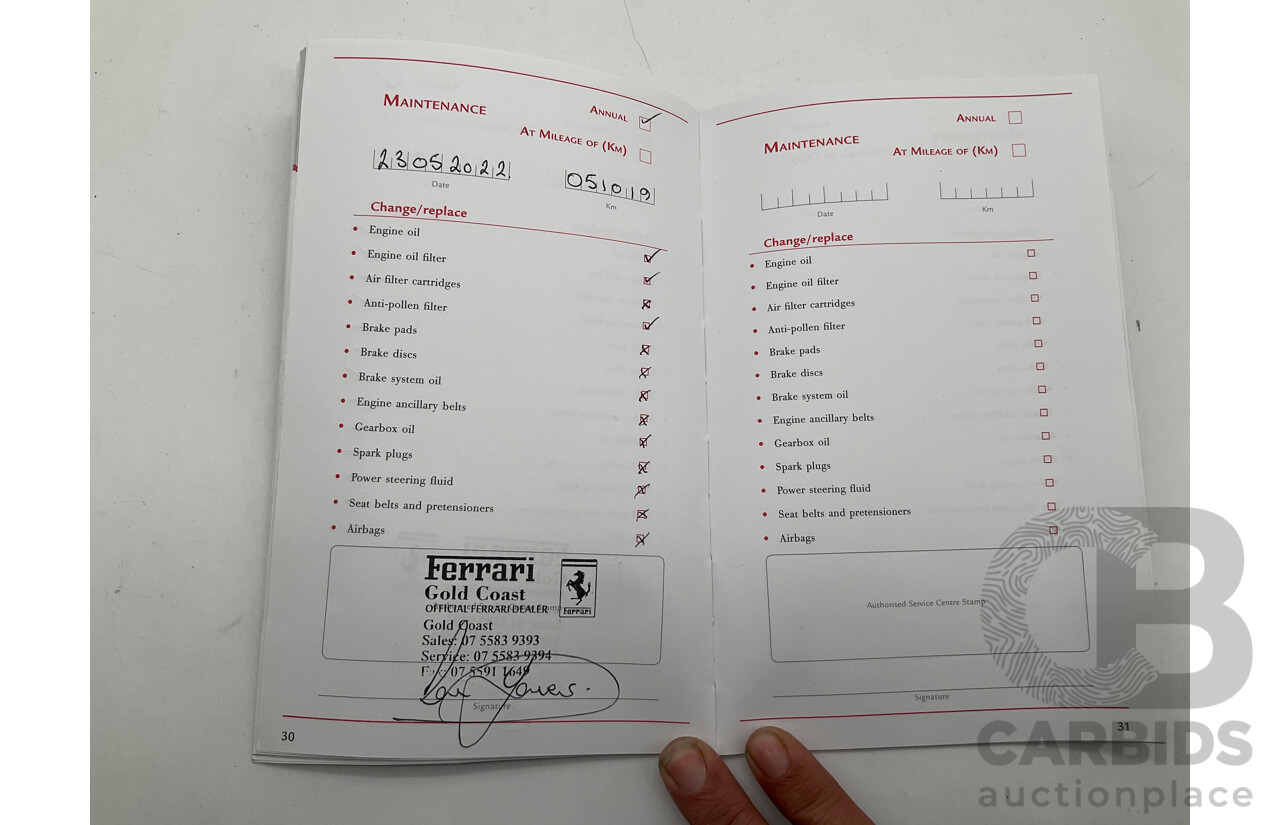 MAINTENANCE
ANNUAL
AT MILEAGE OF (KM)
23052022
Date
051019
Km
Change/replace
• Engine oil
• Engine oil filter
• Air filter cartridges
• Anti-pollen filter
• Brake pads
• Brake discs
• Brake system oil
• Engine ancillary belts
• Gearbox oil
• Spark plugs
• Power steering fluid
• Seat belts and pretensioners
• Airbags
Ferrari
Gold Coast
OFFICIAL FERRARI DEALER
Ferrari
Gold Coast
Sales: 07 5583 9393
Service: 07 5583 9394
Fax: 07 5591 1649
Signature
30
MAINTENANCE
ANNUAL
AT MILEAGE OF (KM)
Date
Km
Change/replace
• Engine oil
• Engine oil filter
• Air filter cartridges
• Anti-pollen filter
• Brake pads
• Brake discs
• Brake system oil
• Engine ancillary belts
• Gearbox oil
• Spark plugs
• Power steering fluid
• Seat belts and pretensioners
• Airbags
Authorised Service Centre Stamp
Signature
31
CB
CARBIDS
auctionplace